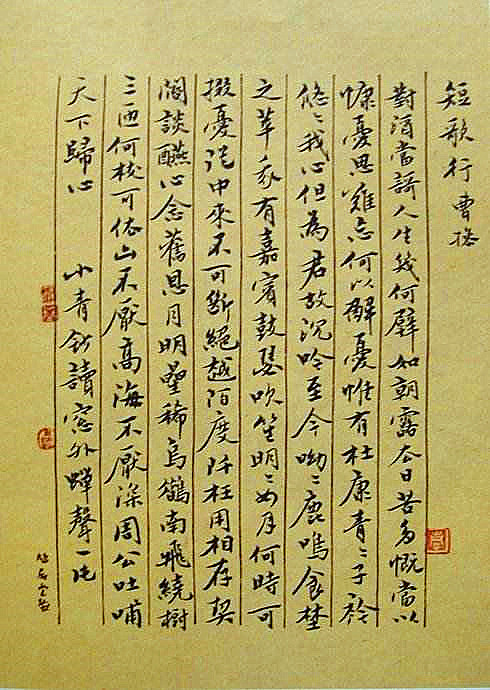 短歌行 曹操
對酒當歌人生幾何譬如朝露去日苦多慨當以
慷憂思難忘何以解憂惟有杜康青〻子衿
悠〻我心但為君故沉吟至今呦〻鹿鳴食埜
之苹我有嘉賓鼓瑟吹笙明〻如月何時可
掇憂從中來不可斷絕越陌度阡枉用相存契
闊談讌心念舊恩月明星稀烏鵲南飛繞樹
三匝何枝可依山不厭高海不厭深周公吐哺
天下歸心 小青鈔讀窗外蟬聲一片